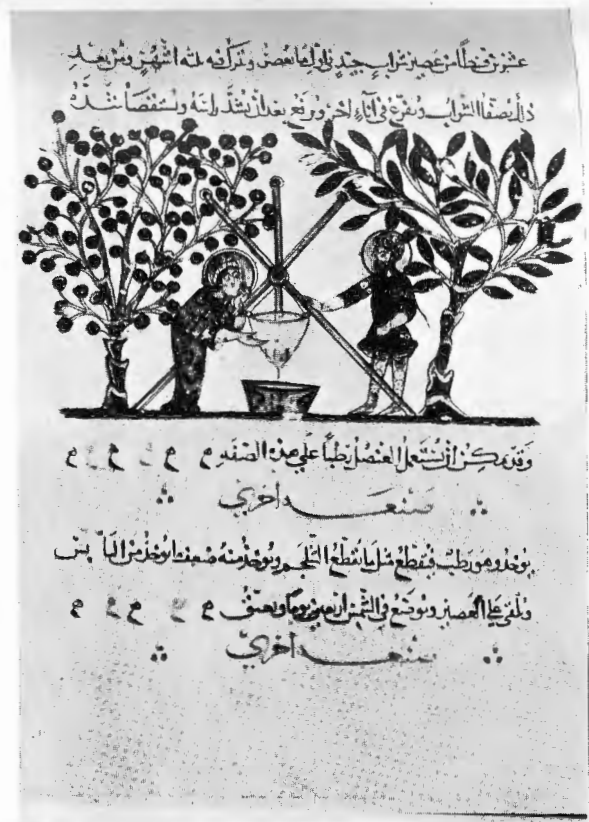 عشرين قسطا من عصير شراب جيد في اول ما يعصر وتركه فيه ثلثة اشهر ومن بعد
ذلك يصفا الشراب ويفرغ في اناء اخر ويرفع بعد ان يشد راسه ويستقصا بشده
وقد يمكن ان يستعمل العنصل رطبا علي هذه الصفه
صنعه اخري
يوخذ وهو رطب فيقطع مثل ما يقطع الشلجم ويوخذ منه ضعف ما يوخذ من اليابس
ويلقي علي العصير ويوضع في الشمس اربعين يوما ويعتق
صنعه اخري